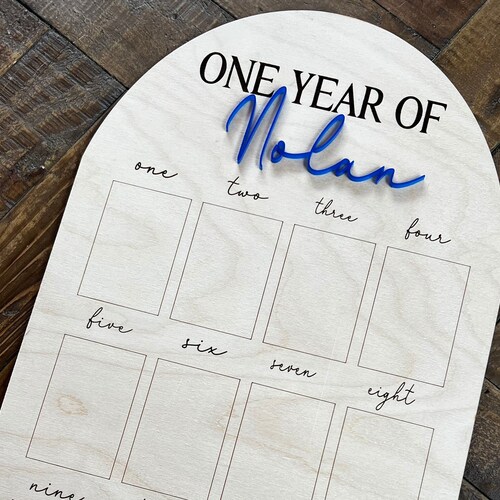 ONE YEAR OF
Nolan
one two three four
five six seven eight
nine